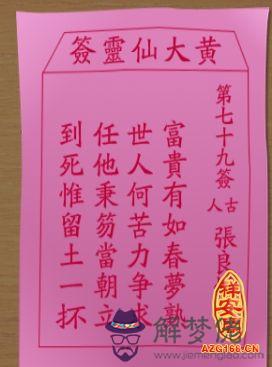 黄大仙靈簽
第七十九簽
古人 張良
富貴有如春夢執
世人何苦力爭求
任他秉笏當朝立
到死惟留土一抔
祥安閣
AZG168.CN
解梦佬